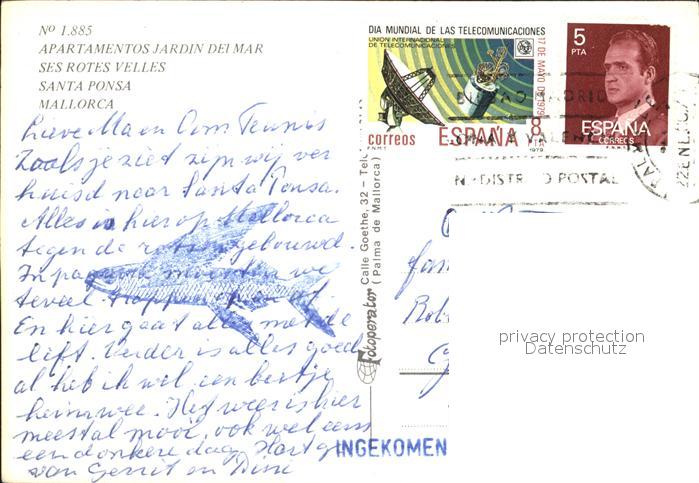 Nº 1.885
APARTAMENTOS JARDIN DEL MAR
SES ROTES VELLES
SANTA PONSA
MALLORCA
Lieve Ma en Om Teunis
Zoals je ziet zijn wij ver
huisd naar Santa Ponsa.
Alles is hier op Mallorca
tegen de rotsen gebouwd.
In moesten we
teveel trappen op en af
En hier gaat alles met de
lift. Verder is alles goed
al heb ik wel een beetje
heimwee. Het weer is hier
meestal mooi, ook wel eens
een donkere dag. Hart gr
van Gerrit en Dini
DIA MUNDIAL DE LAS TELECOMUNICACIONES
UNION INTERNACIONAL
DE TELECOMUNICACIONES
17 DE MAYO DE 1979
correos ESPAÑA 8 PTA
F.N.M.T. 1979
5
PTA
ESPAÑA
CORREOS
F.N.M.T.
Nº DISTRITO POSTAL
22 ENE
Fotoperator Calle Goethe, 32 – Tel
( Palma de Mallorca)
fam
INGEKOMEN
privacy protection
Datenschutz